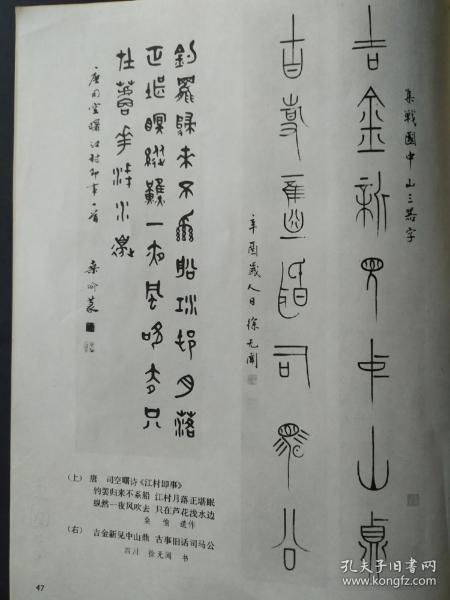 集戰國中山三器字
吉金新見中山鼎
古事舊話司馬公
辛酉歲人日徐无聞
釣罷歸來不系船江邨月落
正堪眠縱然一夜風吹去只
在蘆花淺水邊
唐司空曙江村即事一首
桑愉篆
(上) 唐 司空曙诗《江村即事》
钓罢归来不系船 江村月落正堪眠
纵然一夜风吹去 只在芦花浅水边
桑愉 遗作
(右) 吉金新见中山鼎 古事旧话司马公
四川 徐无闻 书
47
孔夫子旧书网